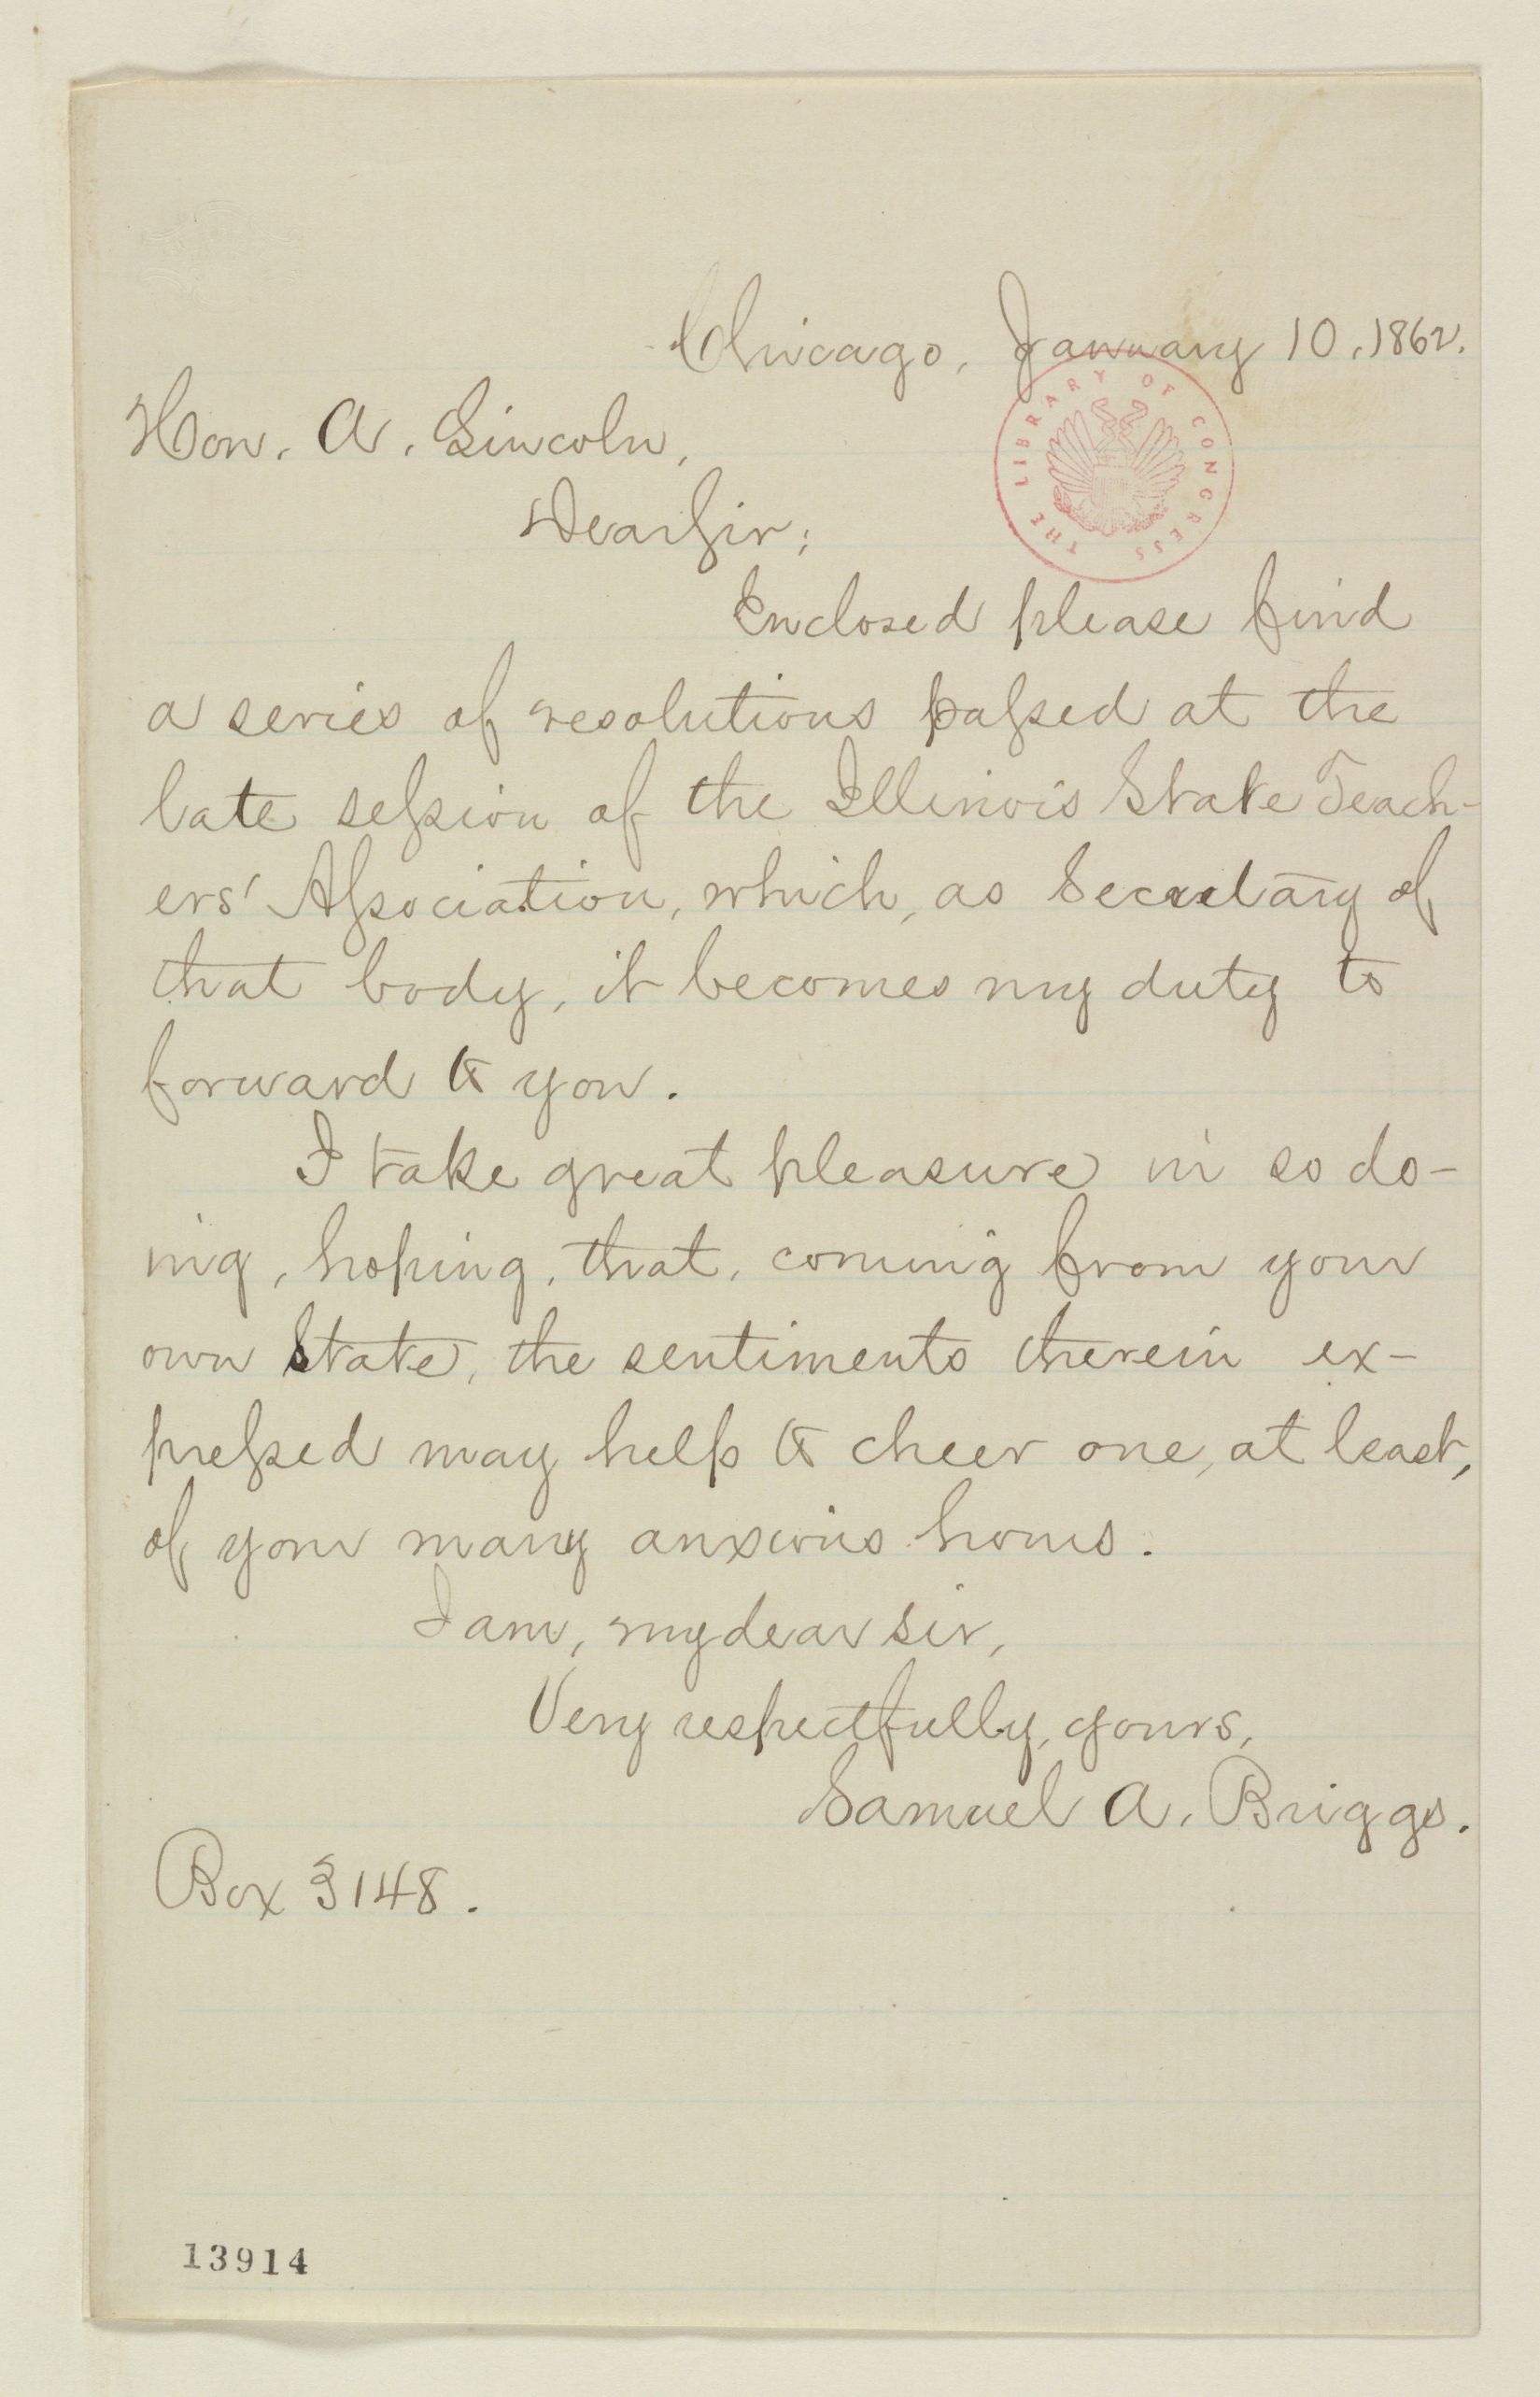 Chicago, January 10, 1862.
Hon. A. Lincoln,
Dear Sir;
THE LIBRARY OF CONGRESS
Enclosed please find
a series of resolutions paſsed at the
late seſsion of the Illinois State Teach-
ers' Aſsociation, which, as Secretary of
that body, it becomes my duty to
forward to you.
I take great pleasure in so do-
ing, hoping, that, coming from your
own State, the sentiments therein ex-
preſsed may help to cheer one, at least,
of your many anxious hours.
I am, my dear sir,
Very respectfully, yours,
Samuel A. Briggs.
Box 3148.
13914